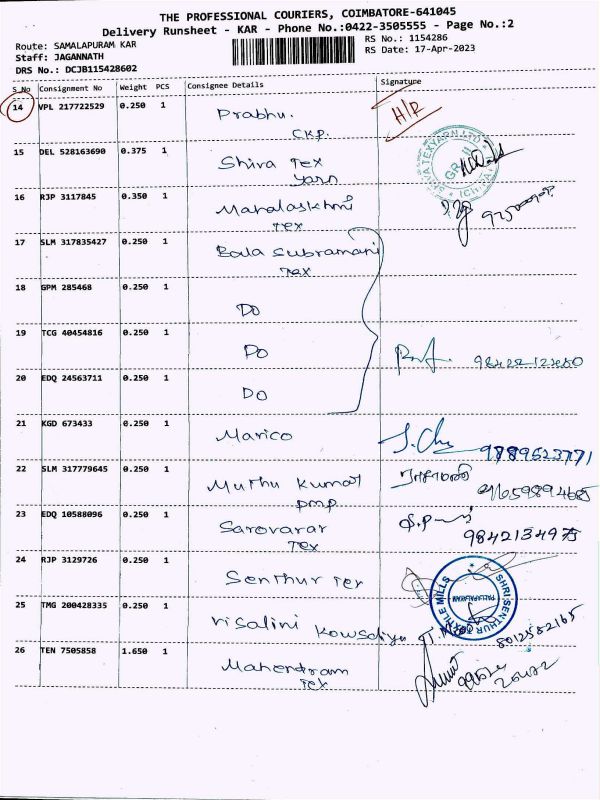 THE PROFESSIONAL COURIERS, COIMBATORE-641045
Delivery Runsheet - KAR - Phone No.:0422-3505555 - Page No.:2
Route: SAMALAPURAM KAR
RS No.: 1154286
Staff: JAGANNATH
RS Date: 17-Apr-2023
DRS No.: DCJB115428602
S No Consignment No Weight PCS Consignee Details Signature
14 VPL 217722529 0.250 1 Prabhu. H/R
CKP.
15 DEL 528163690 0.375 1 Shiva Tex
yarn
SHIVA TEXYARN LTD
GR-II
16 RJP 3117845 0.350 1 Mahalaskhmi
Tex
17 SLM 317835427 0.250 1 Bala Subramani
Tex
18 GPM 285468 0.250 1 Do
19 TCG 40454816 0.250 1 Do
20 EDQ 24563711 0.250 1 Do
21 KGD 673433 0.250 1 Marico
22 SLM 317779645 0.250 1 Muthu Kumar
pmp
23 EDQ 10588096 0.250 1 Sarovarar
Tex
24 RJP 3129726 0.250 1 Senthur Tex
SHRI SENTHUR TEXTILE MILLS
PALLAPALAYAM
25 TMG 200428335 0.250 1 Visalini Kowsalya 8012582165
26 TEN 7505858 1.650 1 Mahendram
Tex